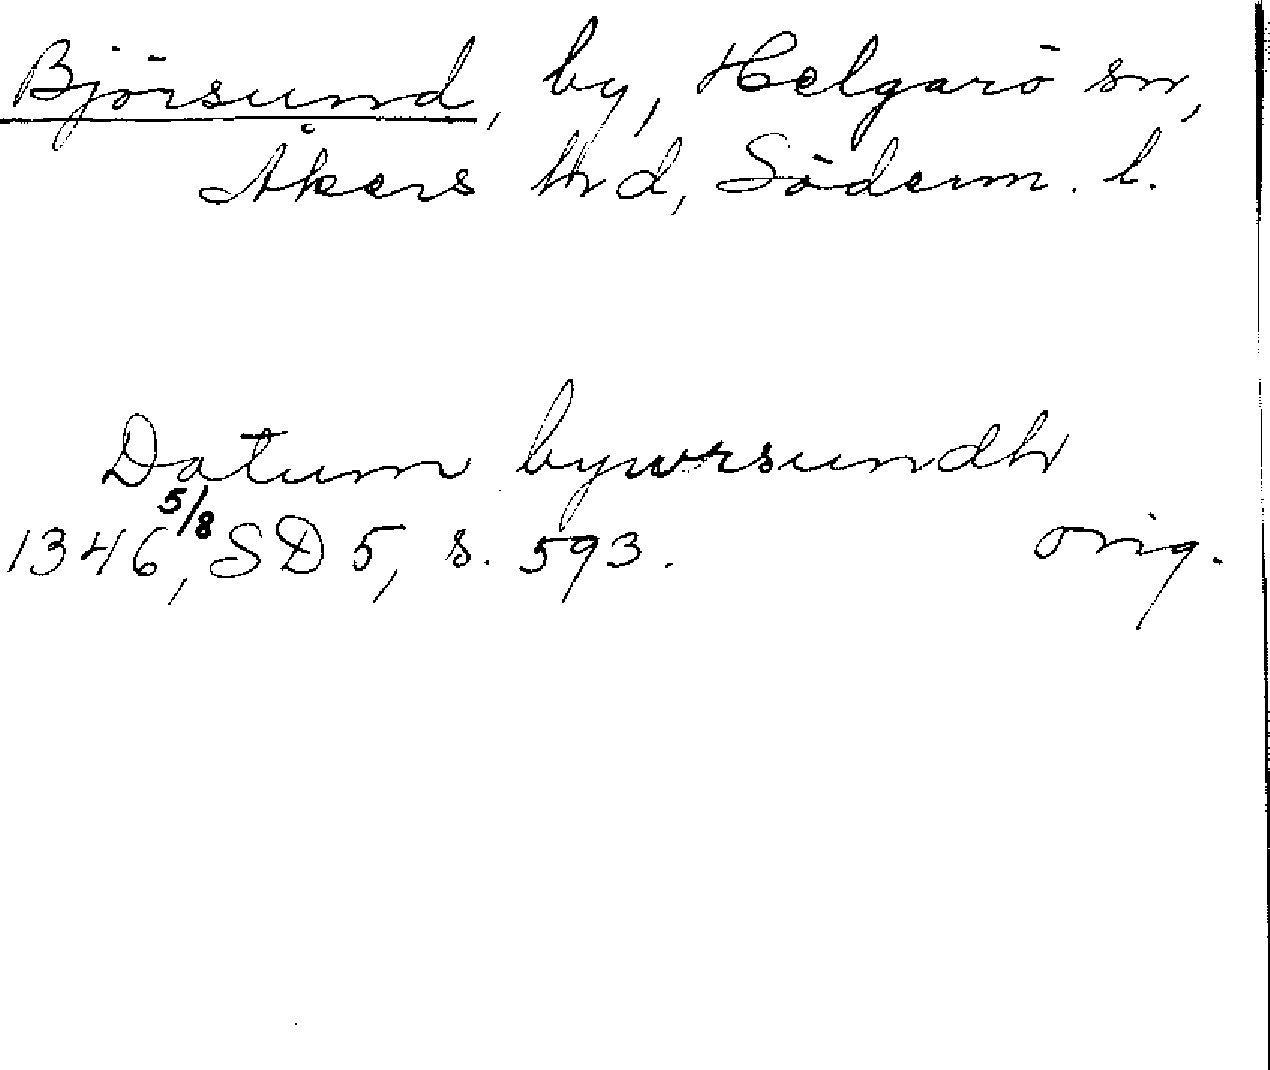 Björsund, by, Helgarö sn,
Åkers hd, Söderm. l.
Datum bywrsundh
1346 5/8, SD 5, s. 593. orig.